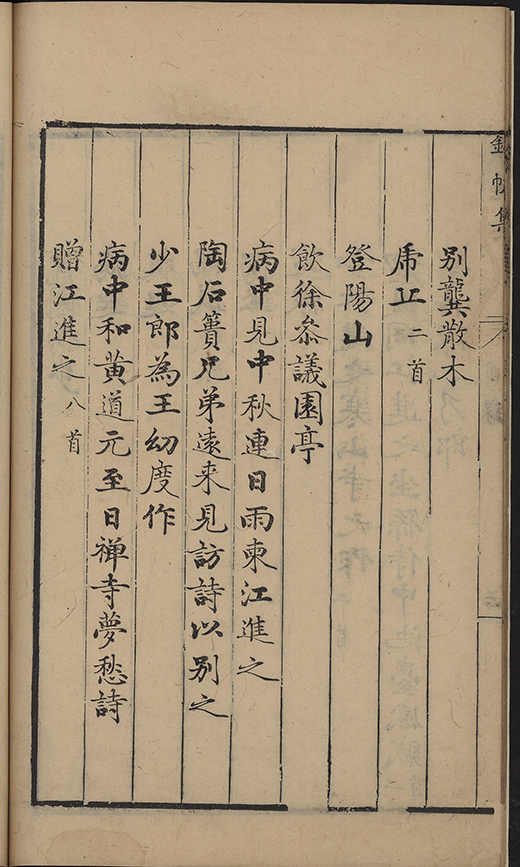 錦帆集
別龔散木
虎丘 二首
登陽山
飲徐叅議園亭
病中見中秋連日雨柬江進之
陶石簣兄弟遠来見訪詩以別之
少王郎為王幼度作
病中和黄道元至日禅寺夢愁詩
贈江進之 八首